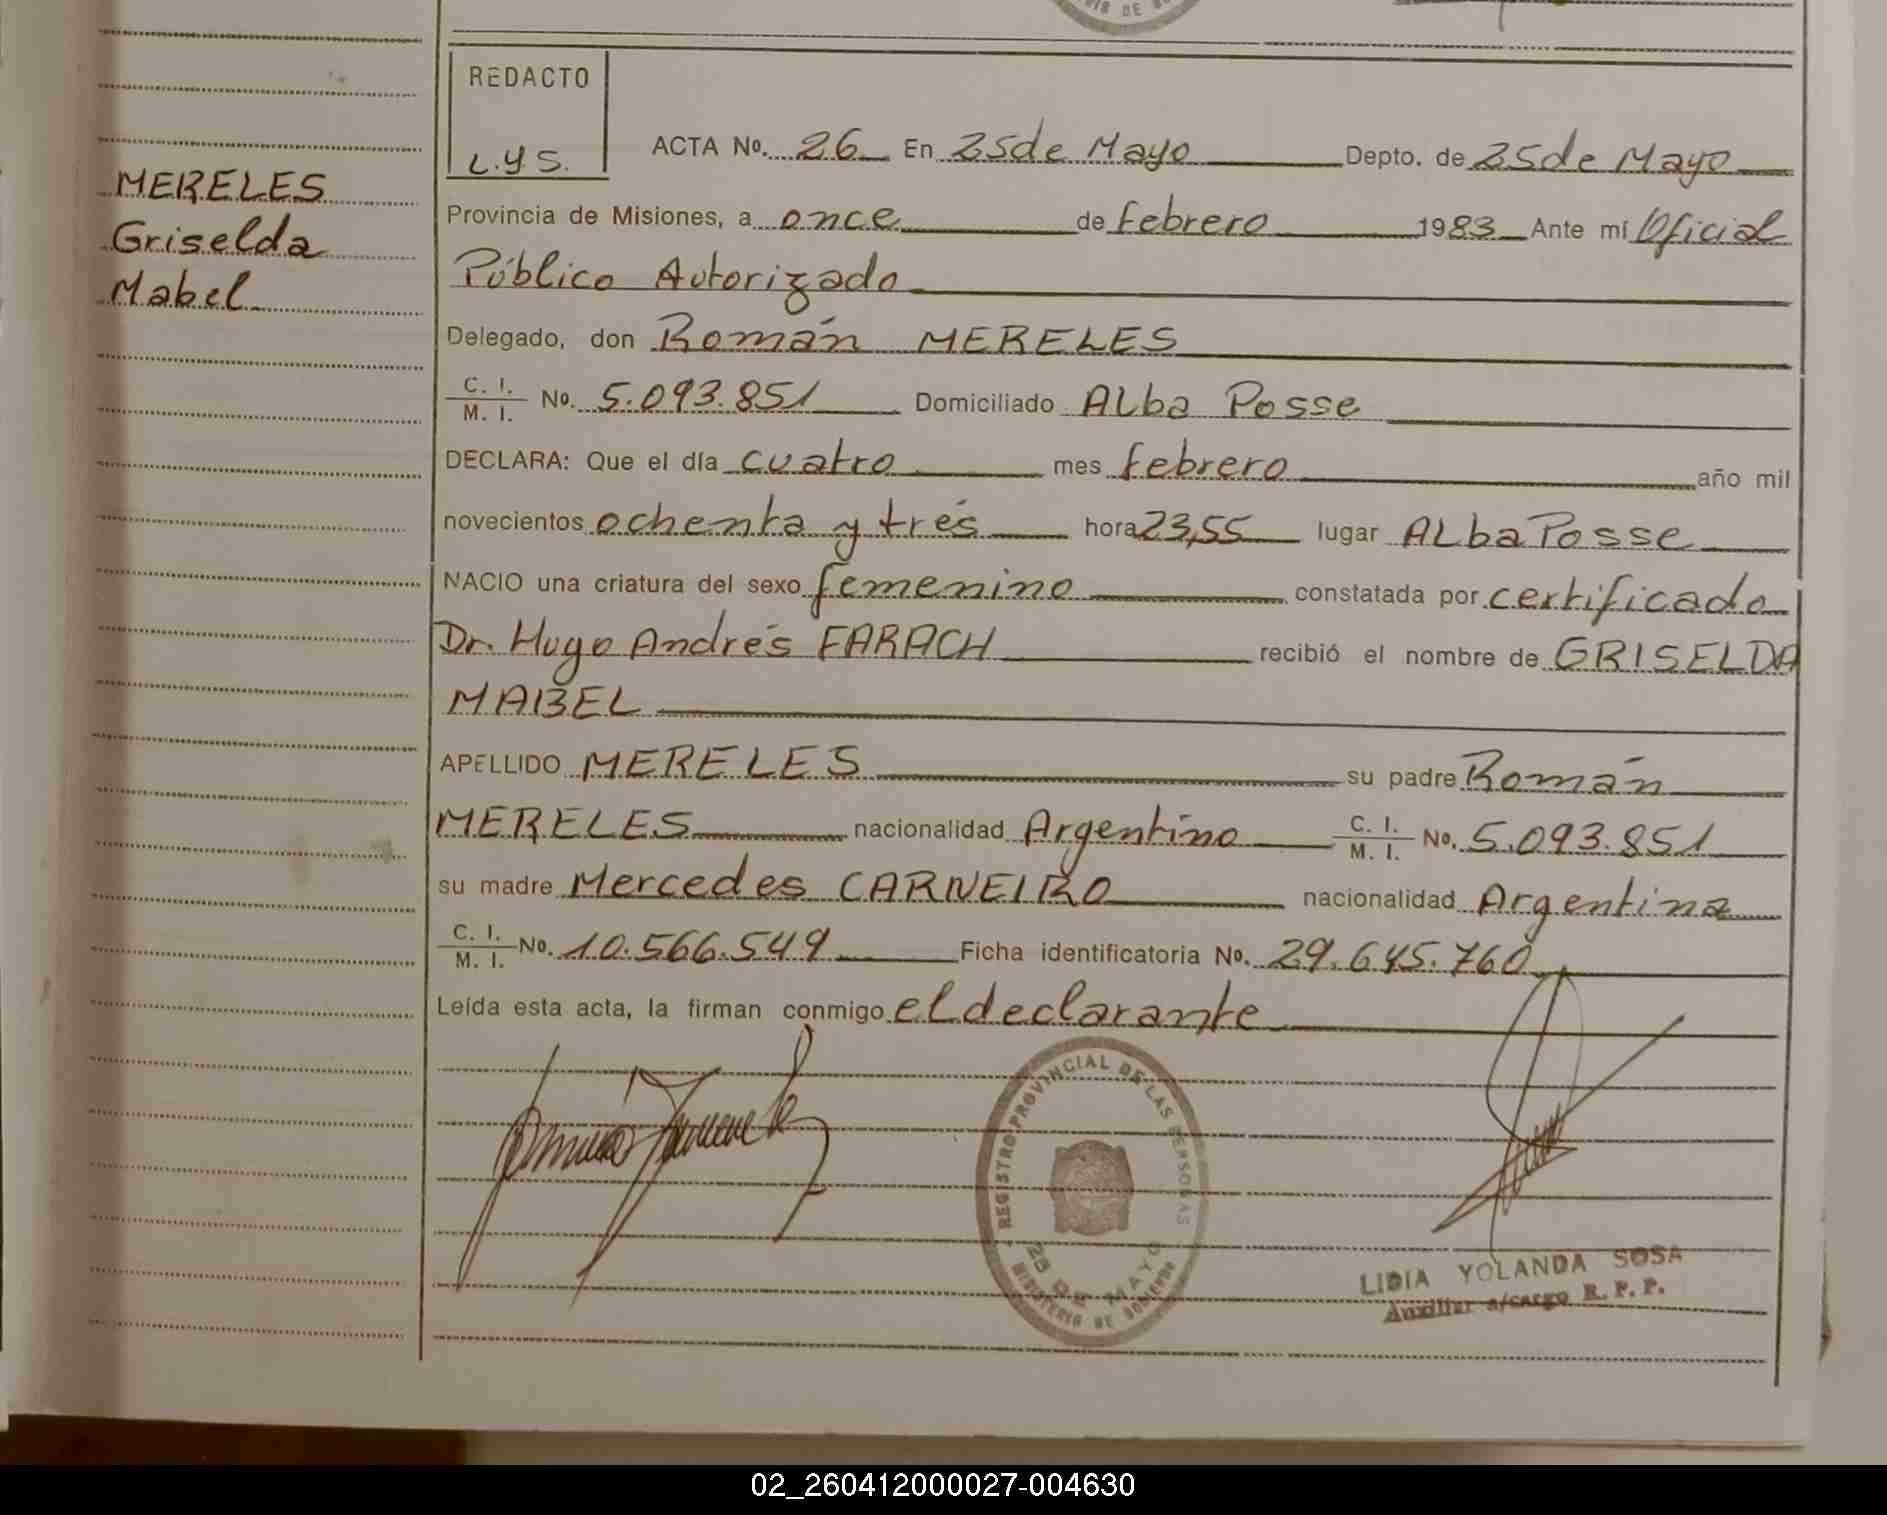 REDACTO
L.y S.
ACTA No. 26 En 25 de Mayo Depto. de 25 de Mayo
MERELES
Griselda
Mabel
Provincia de Misiones, a once de febrero 1983 Ante mí Oficial
Público Autorizado
Delegado, don Román MERELES
C. I.
M. I. No. 5.093.851 Domiciliado Alba Posse
DECLARA: Que el día cuatro mes febrero año mil
novecientos ochenta y trés hora 23,55 lugar Alba Posse
NACIO una criatura del sexo femenino constatada por certificado
Dr. Hugo Andrés FARACH recibió el nombre de GRISELDA
MABEL
APELLIDO MERELES su padre Román
MERELES nacionalidad Argentino C. I.
M. I. No. 5.093.851
su madre Mercedes CARNEIRO nacionalidad Argentina
C. I.
M. I. No. 10.566.549 Ficha identificatoria No. 29.645.760
Leída esta acta, la firman conmigo el declarante
REGISTRO PROVINCIAL DE LAS PERSONAS
25 DE MAYO
MINISTERIO DE GOBIERNO
LIDIA YOLANDA SOSA
Auxiliar a/cargo R. P. P.
02_260412000027-004630